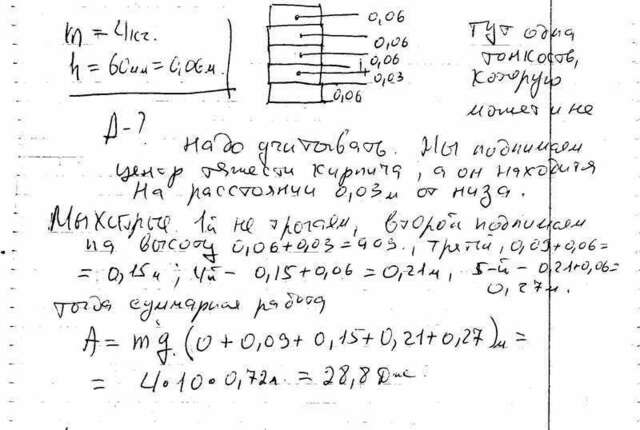 m = 4кг.
h = 60мм = 0,06м.
A - ?
0,06
0,06
0,06
0,03
0,06
Тут одна
тонкость,
которую
может и не
надо учитывать. Мы поднимаем
центр тяжести кирпича, а он находится
на расстоянии 0,03м от низа.
Мы хитрые. 1й не трогаем, второй поднимаем
на высоту 0,06+0,03=0,09., третий, 0,09+0,06=
= 0,15м; 4й - 0,15+0,06 = 0,21м, 5-й - 0,21+0,06=
0,27м.
тогда суммарная работа
A = mg (0 + 0,09 + 0,15 + 0,21 + 0,27)м =
= 4·10·0,72м. = 28,8 Дж.